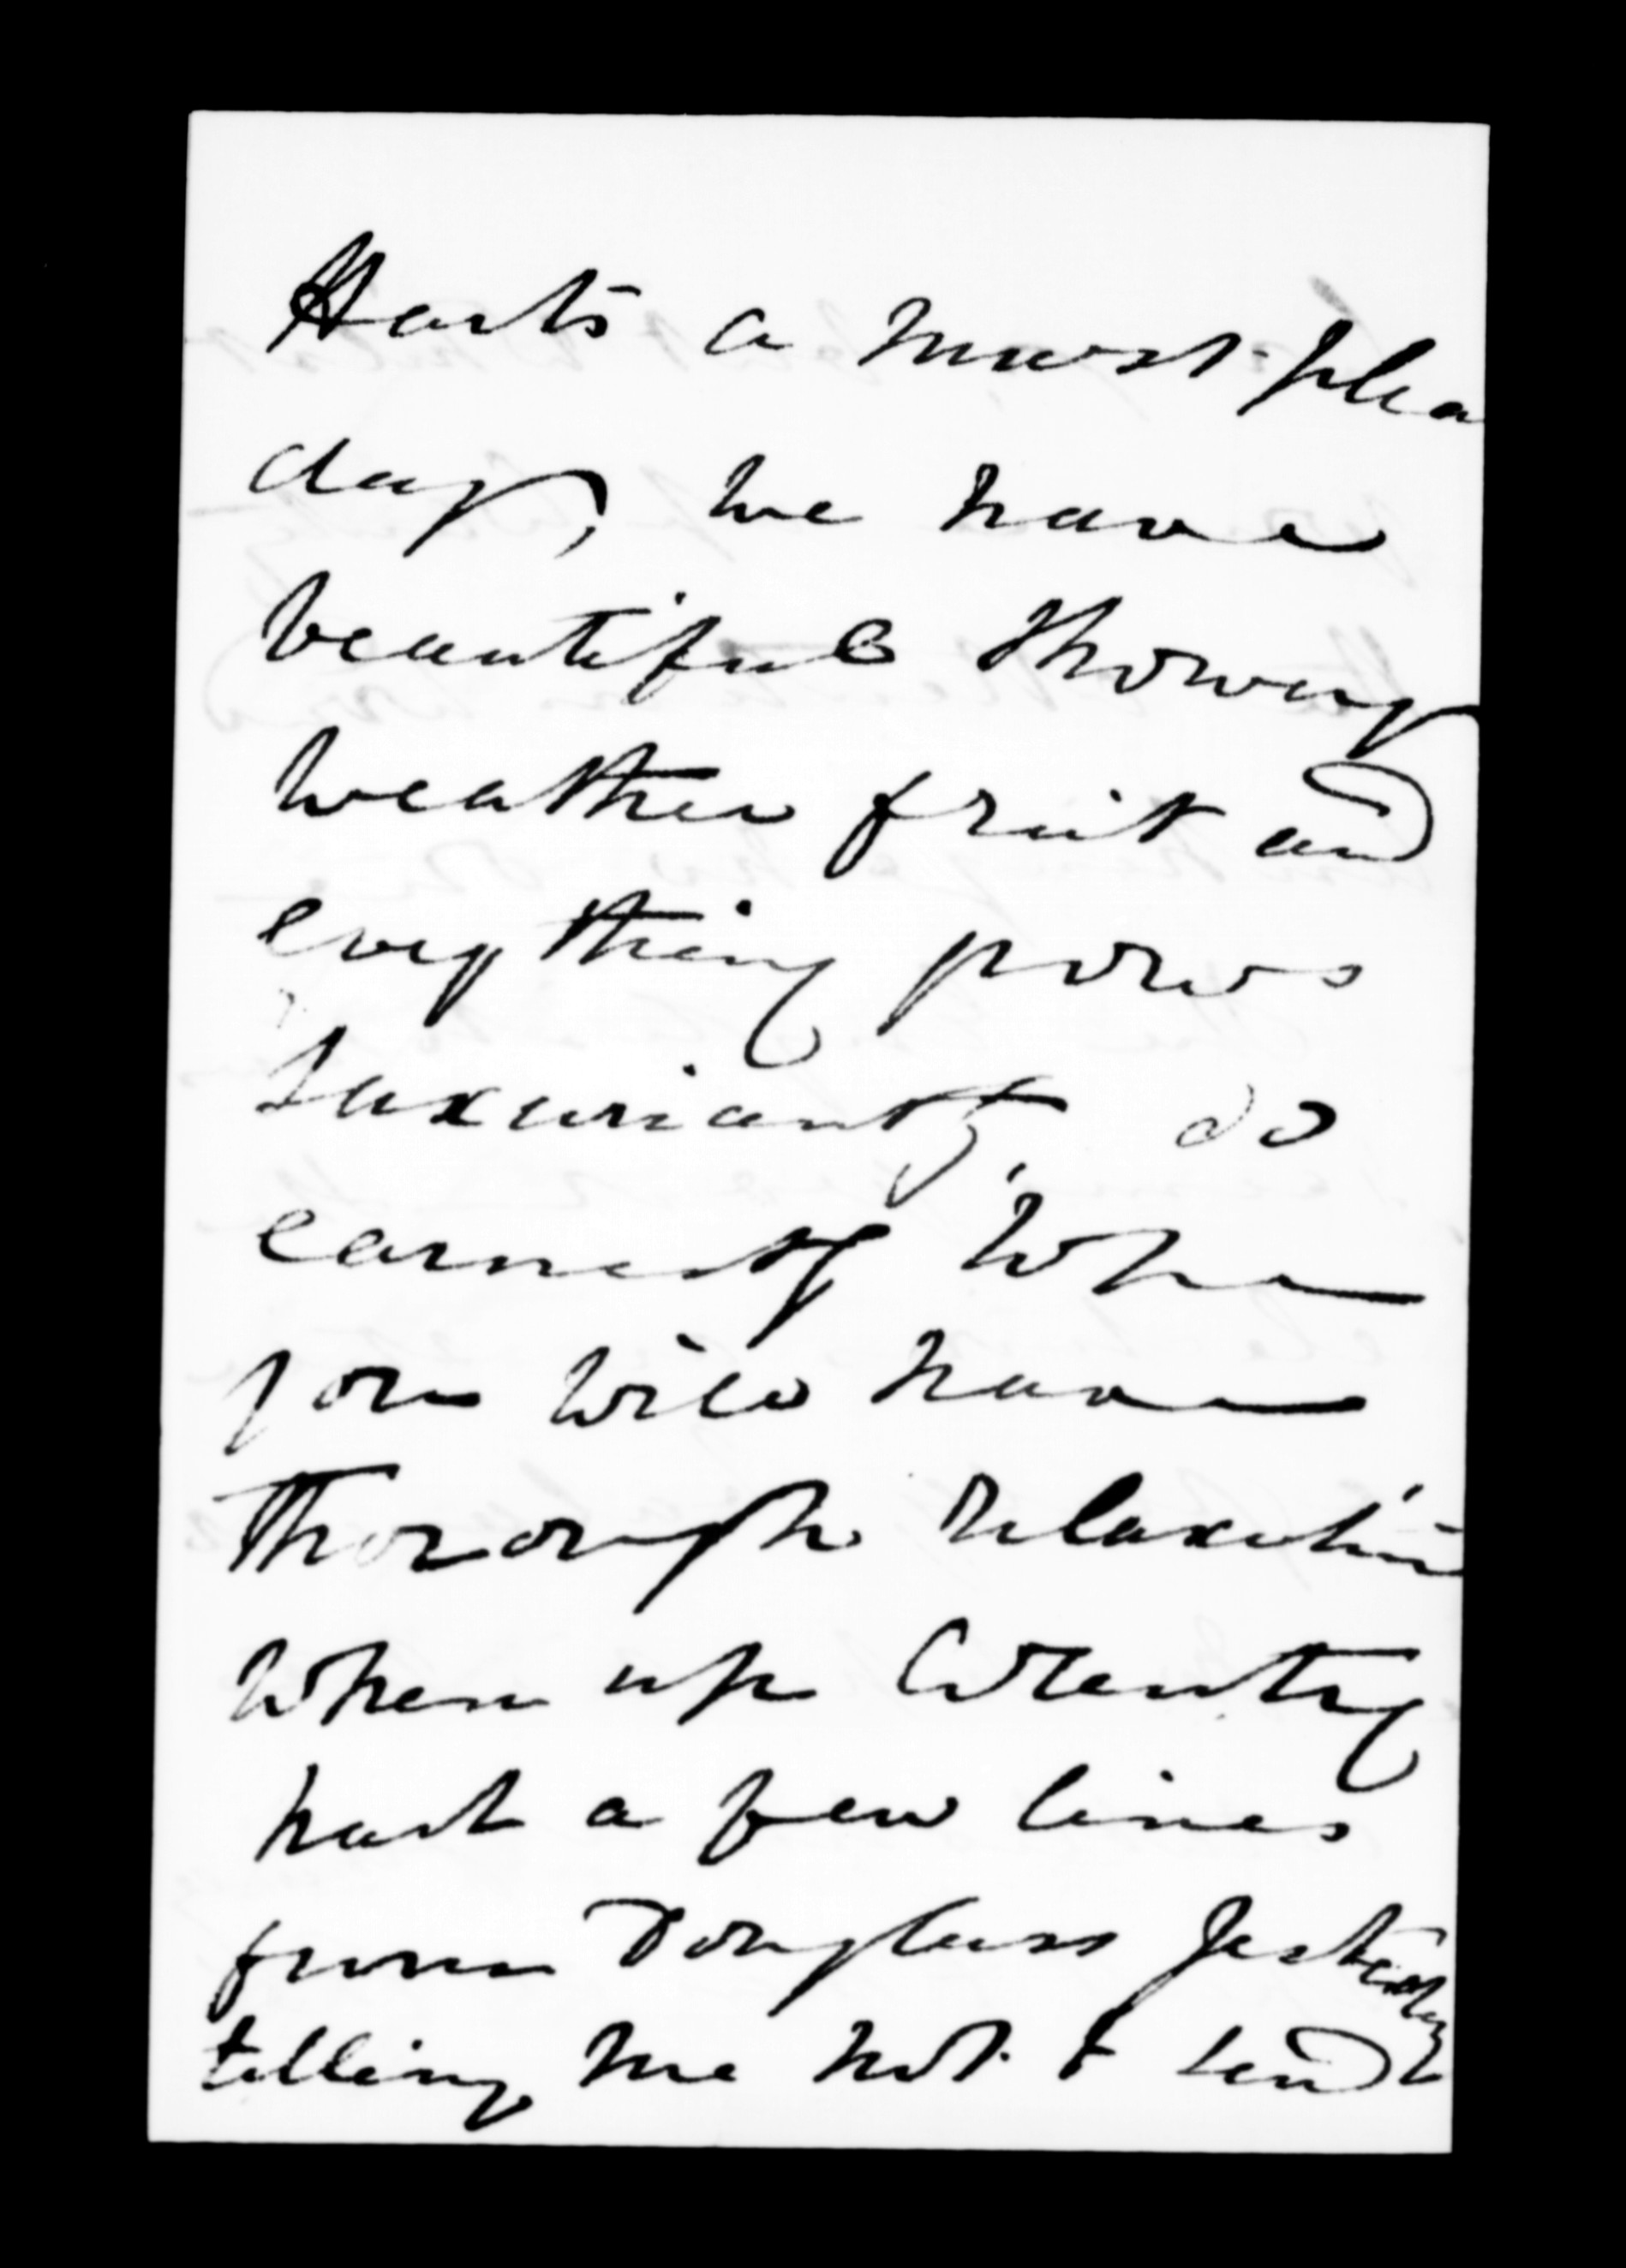 Harts a most plea
day, we have
beautiful showery
weather fruit and
everything grows
luxuriantly do
earnestly hope
you will have
thorough relaxation
when up Country
had a few lines
from Douglass yesterday
telling me not to send